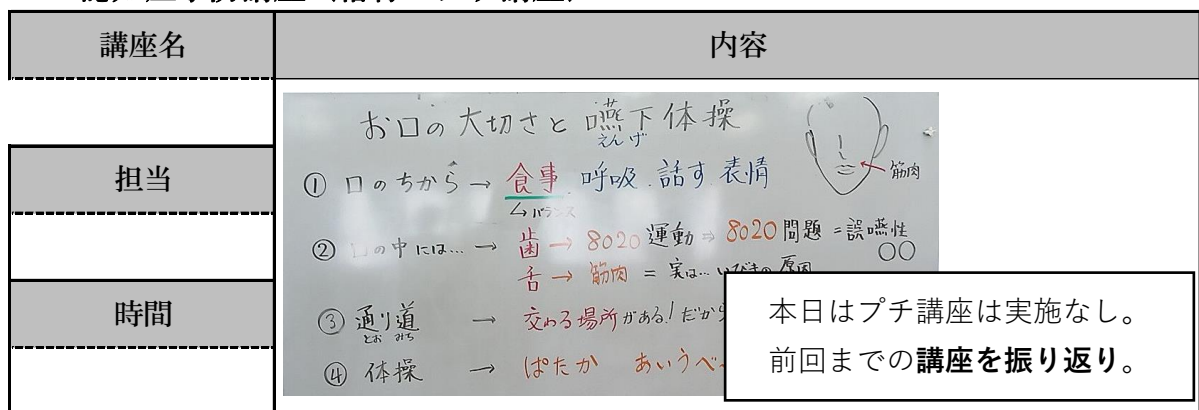 講座名
内容
担当
時間
お口の大切さと嚥下体操
えんげ
① 口のちから→食事 呼吸 話す 表情
筋肉
↳バランス
② 口の中には…→歯→8020運動⇒8020問題=誤嚥性
〇〇
舌→筋肉=実は…いびきの原因
③ 通り道→交わる場所がある!だから
とお みち
④ 体操→ぱたか あいうべ
本日はプチ講座は実施なし。
前回までの講座を振り返り。